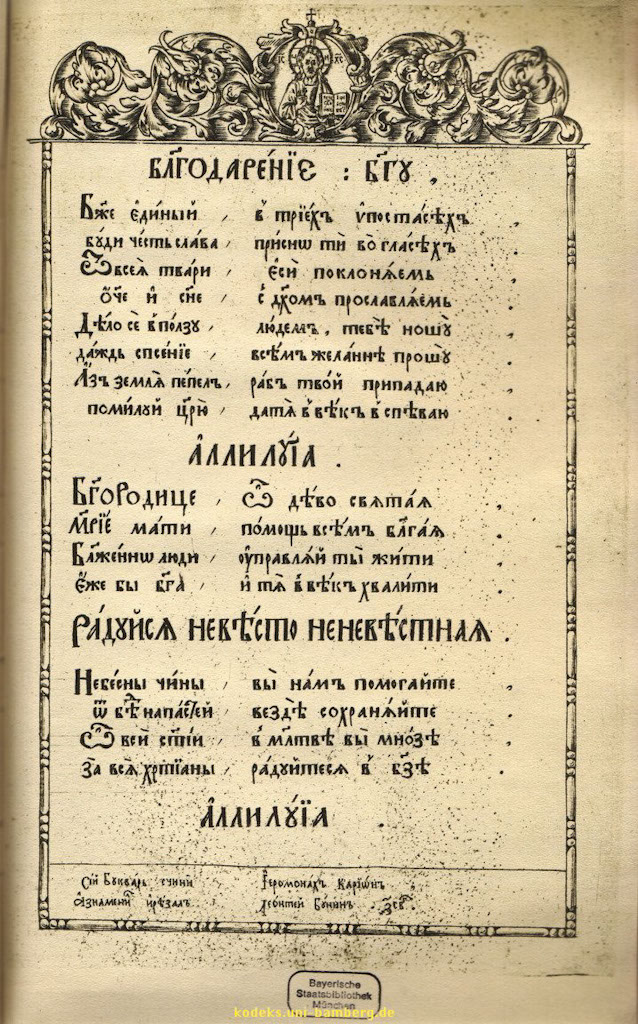 БЛ҃ГОДАРЕ́НЇЕ : БГ҃У ,
Бж҃е є҆ди́ный , в̾ трїе́хъ ѵ҆постасѣхъ ,
бꙋди че́сть слава , при́снѡ ти во гласѣхъ
Ѿ всеѧ̀ твари , є҆сѝ поклонѧ́емь .
ѻ҆́ч҃е и҆ сн҃е , с̾ дх҃омъ прославлѧ́емь .
Дѣ́ло сѐ в̾ по́лзꙋ , лю́демъ , тебѣ̀ ношꙋ̀
да́ждь сп҃се́нїе , всѣ́мъ жела́нїе прошꙋ̀ .
А҆́зъ землѧ̀ пе́пелъ , ра́бъ тво́й припадаю .
поми́лꙋй цр҃ю̀ , да тѧ̀ в̾ вѣ́къ в̾спѣваю .
А҆ЛЛИЛꙊ́ЇА .
БГ҃ОРОДИЦЕ , Ѽ дѣ́во свѧта́ѧ .
МР҃І́Е ма́ти , по́мощь всѣ́мъ бл҃га́ѧ .
Бл҃же́ннѡ люди , ᲂу҆правлѧ́й ты̀ жи́ти
Є҆́же бы бг҃а , и҆ тѧ̀ в̾ вѣ́къ хвали́ти
РА́ДꙊЙСѦ НЕВѢ́СТО НЕНЕВѢ́СТНАѦ .
Небе́сны чи́ны , вы̀ на́мъ помога́йте ,
ѿ бѣ́дъ напа́стей , вездѣ̀ сохранѧ́йте .
Ѽ всѝ ст҃і́и , в̾ мл҃твѣ вы̀ мно́зѣ .
За всѧ̀ хрⷭ҇тїаны , ра́дꙋйтесѧ в̾ бз҃ѣ .
А҆ЛЛИЛꙊ́ЇА .
Сі́й Бꙋква́рь І҆еромона́хъ Карїѡ́нъ ,
леѻнтей Бꙋнинъ
Bayerische
Staatsbibliothek
München
kodeks.uni-bamberg.de